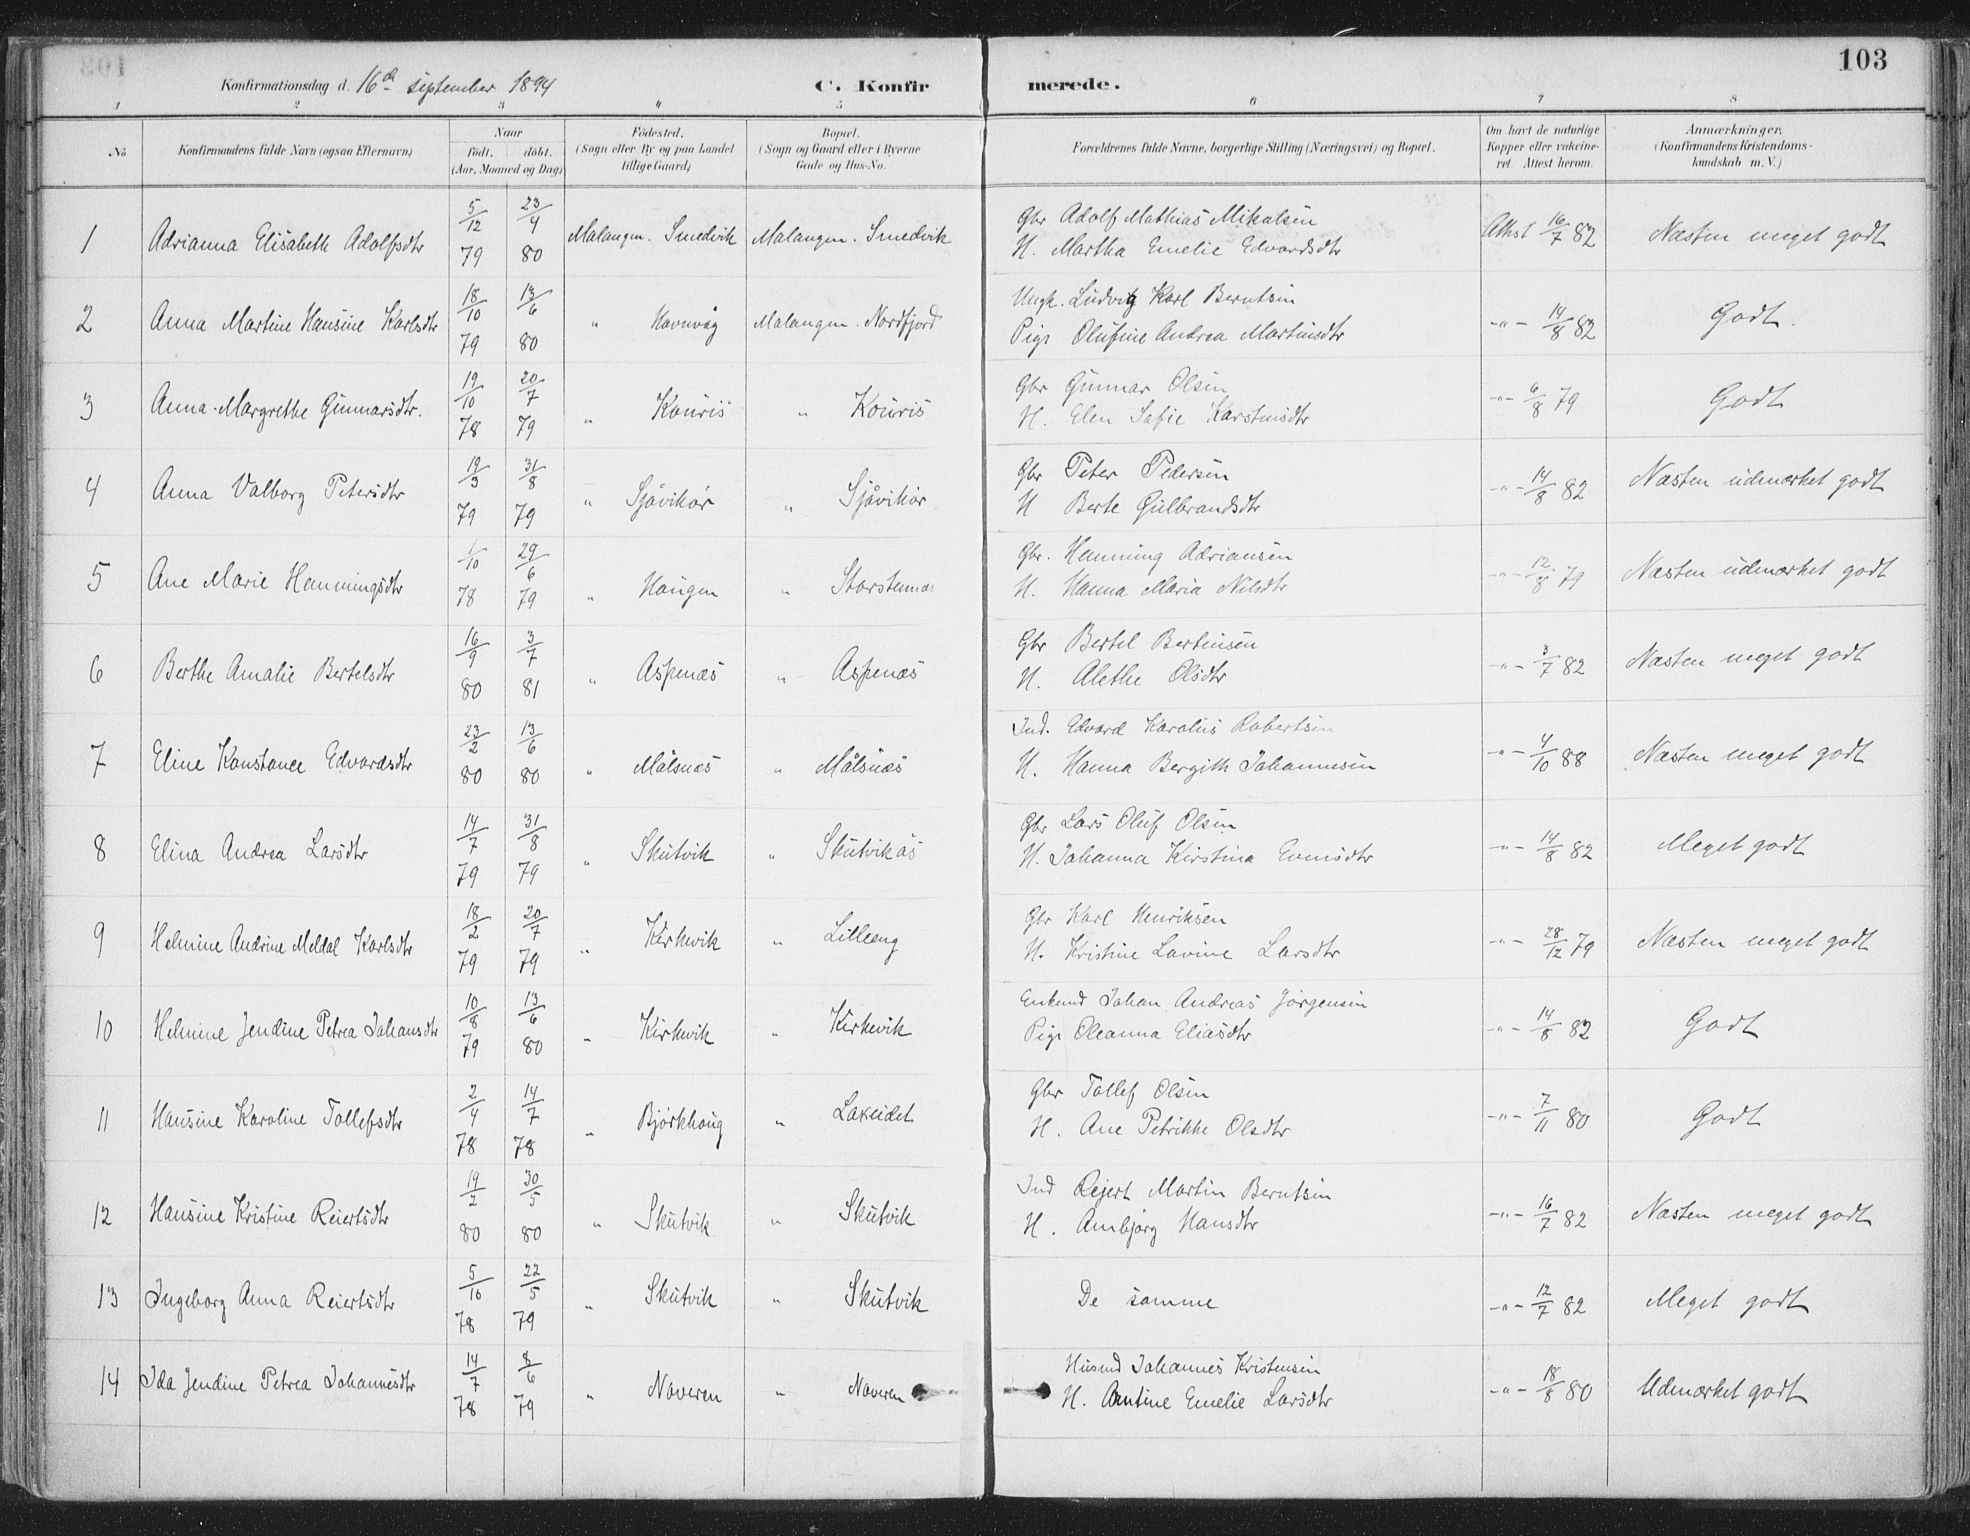 103
Konfirmationsdag d. 16de september 1894 C. Konfirmerede.
1 2 3 4 5 6 7 8
No
Konfirmandens fulde Navn (ogsaa Efternavn)
Naar
födt. döbt.
(Aar, Maaned og Dag)
Födested.
(Sogn eller By og paa Landet
tillige Gaard)
Bopæl.
(Sogn og Gaard eller i Byerne
Gade og Hus-No.
Forældrenes fulde Navne, borgerlige Stilling (Næringsvei) og Bopæl.
Om havt de naturlige
Kopper eller vakcine-
ret. Attest herom.
Anmærkninger.
(Konfirmandens Kristendoms-
kundskab m. V.)
1 Adrianna Elisabeth Adolfsdtr 5/12 79 23/4 80 Malangen. Smedvik Malangen. Smedvik
Gbr Adolf Mathias Mikalsen
H. Martha Emelie Edvardsdtr
Attest 16/7 82 Næsten meget godt
2 Anna Martine Hansine Karlsdtr 18/10 79 13/6 80 " Havnvåg Malangen. Nordfjord
Ungk. Ludvig Karl Berntsen
Pige Olufine Andrea Martinsdtr
-"- 14/8 82 Godt.
3 Anna Margrethe Gunnarsdtr. 19/10 78 20/7 79 " Kouris " Kouris
Gbr Gunnar Olsen
H. Elen Safie Karstensdtr
-"- 6/8 79 Godt
4 Anna Valborg Petersdtr 19/3 79 31/8 79 " Sjåvikør " Sjåvikør
Gbr Peter Pedersen
H Berte Gulbrandsdtr
-"- 14/8 82 Næsten udmærket godt
5 Ane Marie Henningsdtr 1/10 78 29/6 79 " Haugen " Storstennæs
Gbr. Henning Adriansen
H. Hanna Maria Nilsdtr
-"- 12/8 79 Næsten udmærket godt
6 Berthe Amalie Bertelsdtr 16/9 80 3/7 81 " Aspenæs " Aspenæs
Gbr Bertel Bertinsen
H. Alethe Olsdtr
-"- 3/7 82 Næsten meget godt
7 Eline Konstance Edvardsdtr 23/2 80 13/6 80 " Målsnæs " Målsnæs
Ind. Edvard Karolius Robertsen
H. Hanna Bergith Johannesen
-"- 4/10 88 Næsten meget godt
8 Elina Andrea Larsdtr 14/7 79 31/8 79 " Skutvik " Skutvikås
Gbr Lars Oluf Olsen
H. Johanna Kirstina Evensdtr
-"- 14/8 82 Meget godt
9 Helmine Andrine Meldal Karlsdtr 18/2 79 20/7 79 " Kirkevik " Lilleeng
Gbr Karl Henriksen
H. Kristine Lovine Larsdtr
-"- 28/12 79 Næsten meget godt
10 Helmine Jendine Petrea Johansdtr 10/8 79 13/6 80 " Kirkevik " Kirkevik
Enkemd Johan Andreas Jørgensen
Pige Oleanna Eliasdtr
-"- 14/8 82 Godt
11 Hansine Karoline Tollefsdtr 2/4 78 14/7 78 " Bjørkhaug " Lakseidet
Gbr Tollef Olsen
H. Ane Petrikke Olsdtr
-"- 7/11 80 Godt
12 Hansine Kristine Reiertsdtr 19/2 80 30/5 80 " Skutvik " Skutvik
Ind Rejert Martin Berntsen
H. Arnbjørg Hansdtr
-"- 16/7 82 Næsten meget godt
13 Ingeborg Anna Reiertsdtr 5/10 78 22/5 79 " Skutvik " Skutvik
De samme
-"- 12/7 82 Meget godt
14 Ida Jendine Petrea Johannesdtr 14/7 78 8/6 79 " Naveren " Naveren
Husmd Johannes Kristensen
H. Antine Emelie Larsdtr
-"- 18/8 80 Udmærket godt